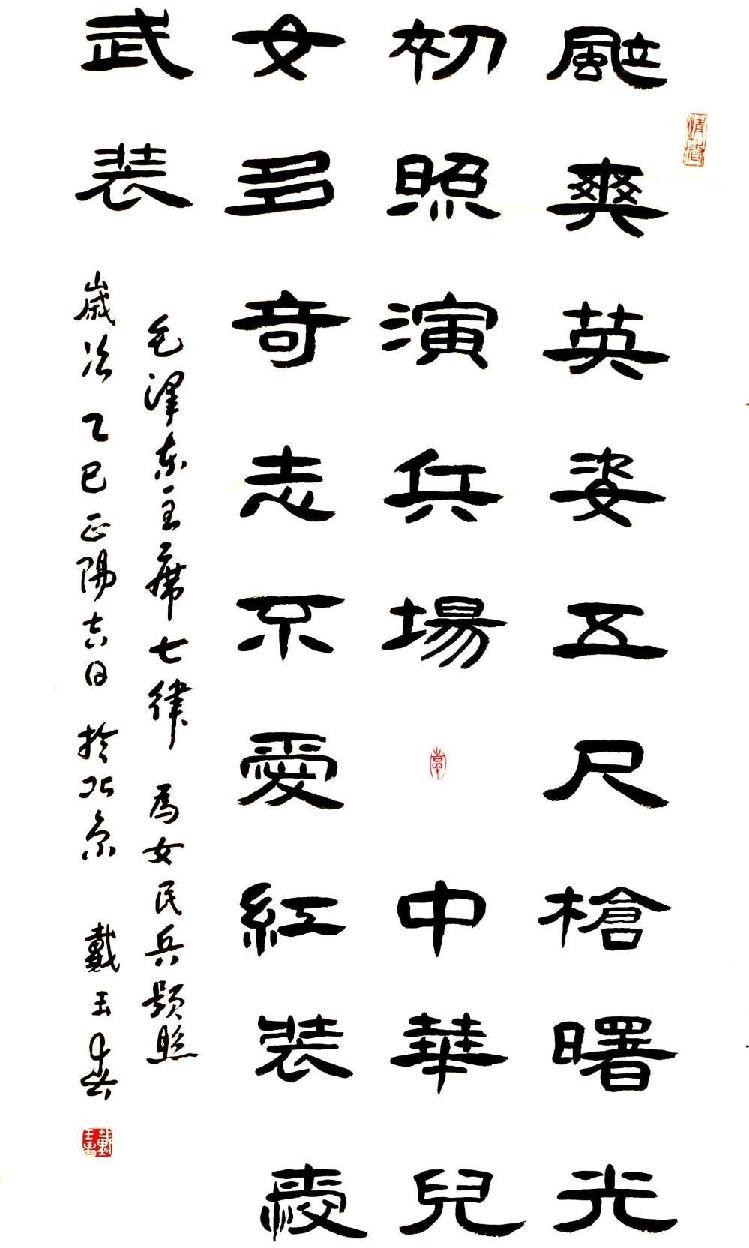 颯爽英姿五尺槍曙光
初照演兵場 中華兒
女多奇志不愛紅装愛
武装
毛澤东主席七律 為女民兵題照
歲次乙巳正陽吉日 於北京 戴玉